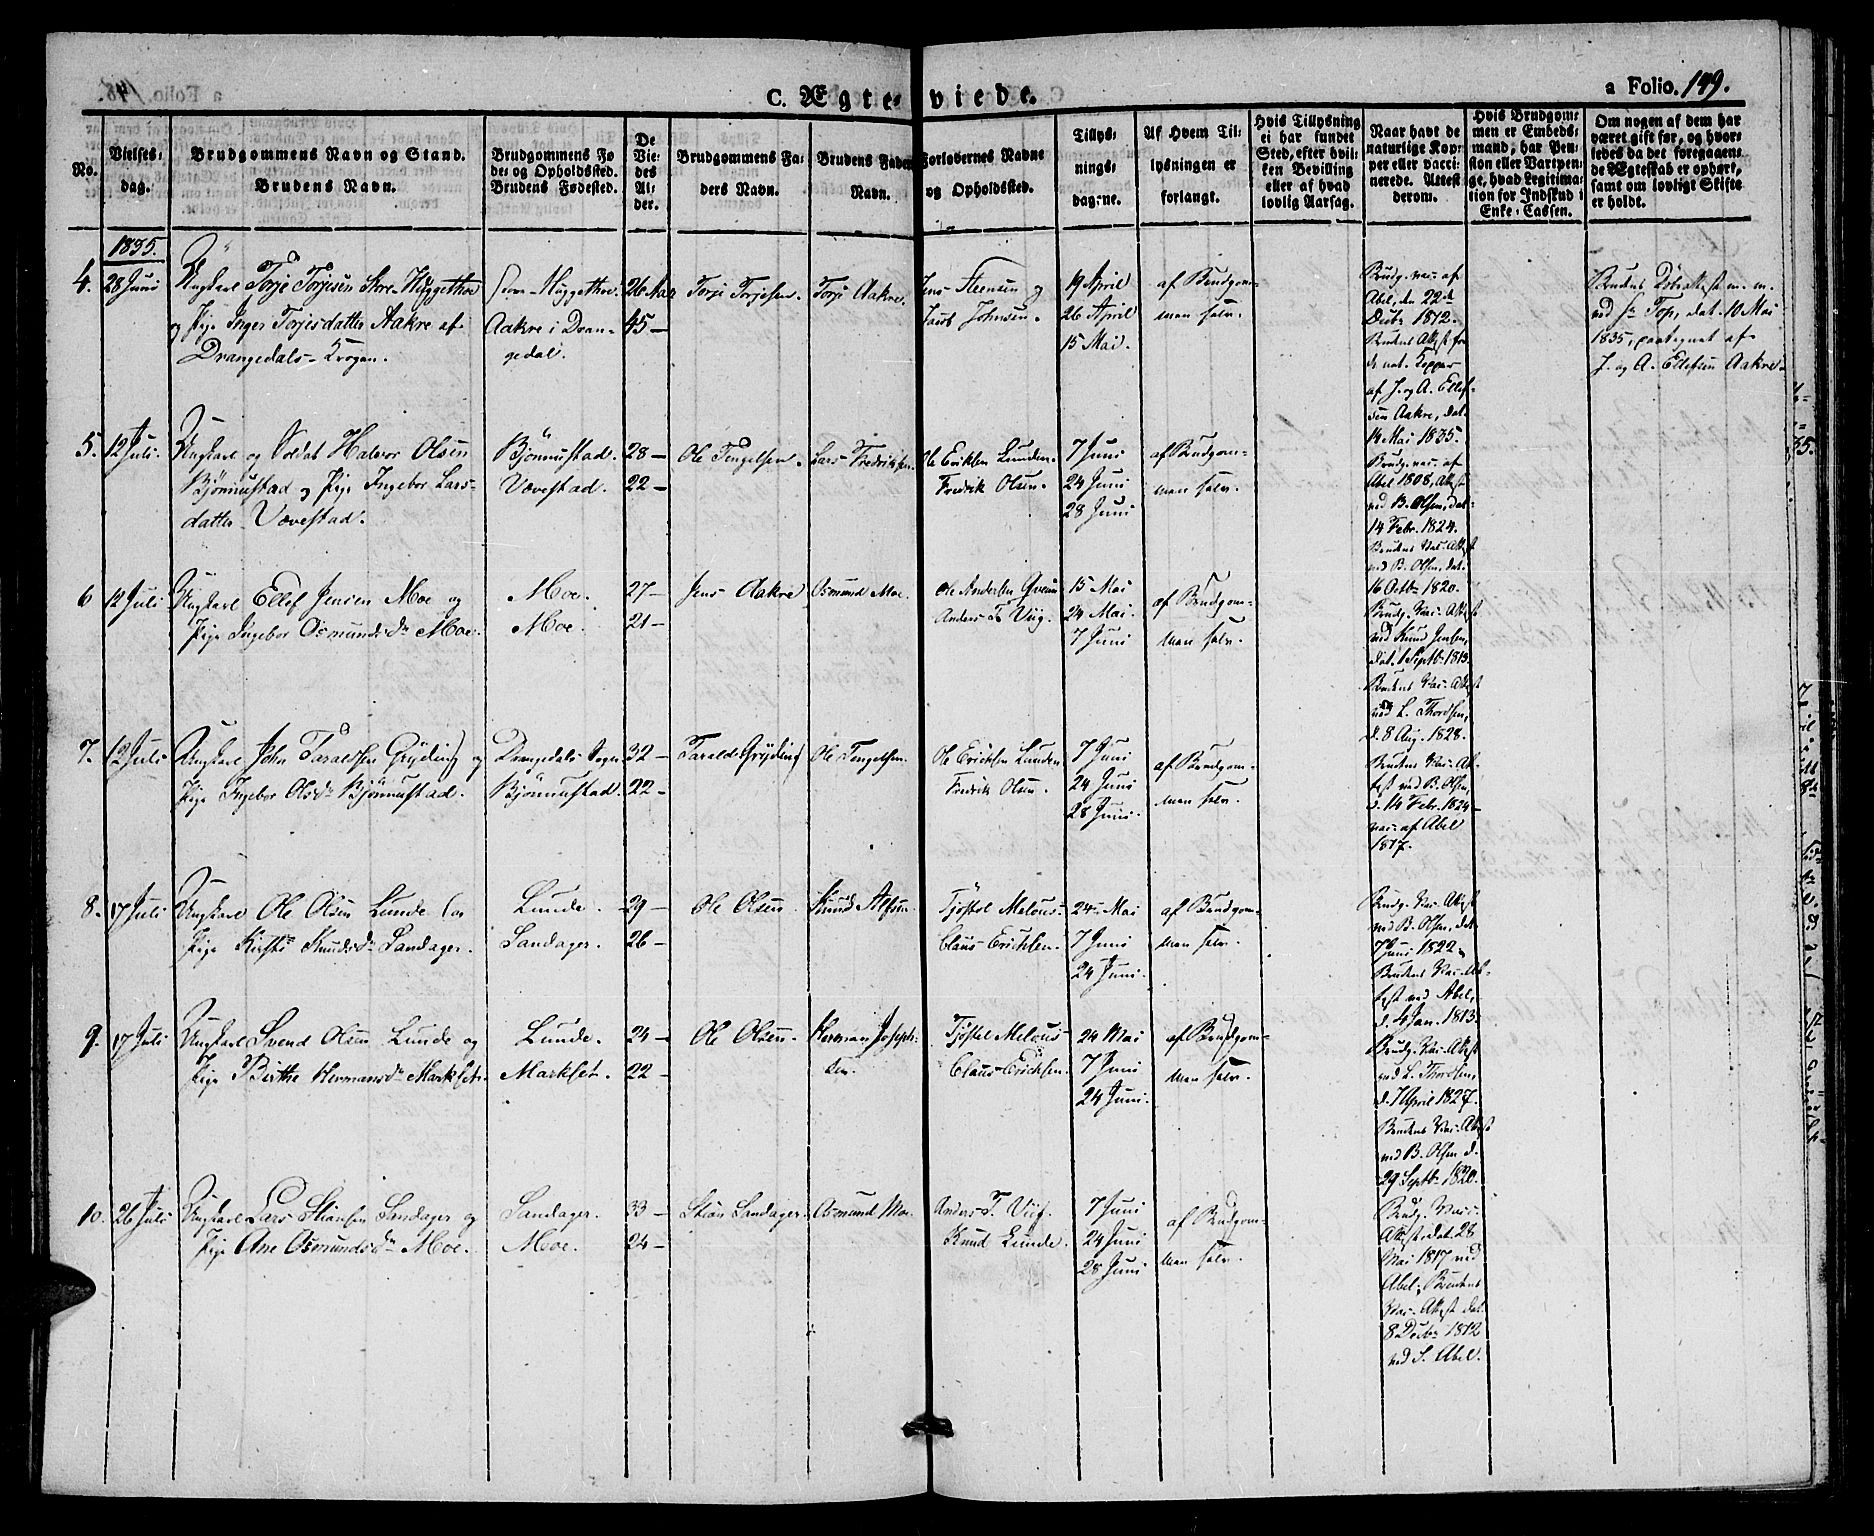 C. Ægteviede.
a Folio. 149.
No.
Vielses-
dag.
Brudgommens Navn og Stand.
Brudens Navn.
Brudgommens Fø
de- og Opholdssted.
Brudens Fødested.
De
Vie-
des
Al-
der.
Brudgommens Fa-
ders Navn.
Brudens Faders
Navn.
Forlovernes Navne
og Opholdssted.
Tillys-
nings-
dagene.
Af Hvem Til-
lysningen er
forlangt.
Hvis Tillysning
ei har fundet
Sted, efter hvil-
ken Bevilling
eller af hvad
lovlig Aarsag.
Naar havt de
naturlige Kop-
per eller vacci-
nerede. Attest
derom.
Hvis Brudgom-
men er Embeds-
mand, har Pen-
sion eller Vartpen-
ge, hvad Legitima-
tion for Indskud i
Enke-Cassen.
Om nogen af dem har
været gift før, og hvor-
ledes da det foregaaen-
de Ægteskab er ophørt,
samt om lovligt Skifte
er holdt.
1835.
4. 28 Juni
Ungkarl Torje Torjesen Hyggethve
og Pige Inger Torjesdatter Aakre af
Drangedals-Krogen.
Hyggethve.
Aakre i Dran-
gedal.
26 Aar
45 –
Torje Torjesen.
Torje Aakre.
Jens Steensen og
Jacob Johnsen.
19 April
26 April
15 Mai.
af Brudgom-
man selv.
Brudg. vac. af
Abel, den 22de
Decbr 1812.
Brudens Attest for
de nat. Kopper
af J. og A. Ellef-
sen Aakre, dat.
14 Mai 1835.
Brudens Døbeattest m. m.
ved Hr Top, dat. 10 Mai
1835, paategnet af
J. og A. Ellefsen Aakre.
5. 12 Juli.
Ungkarl og Soldat Halvor Olsen
Bjönnustad og Pige Ingebor Lars-
datter Vævestad.
Bjönnustad.
Vævestad.
28 –
22 –
Ole Tengelsen.
Lars Fredriksen.
Ole Eriksen Lunden.
Fredrik Olsen.
7 Juni
24 Juni
28 Juni
af Brudgom-
man selv.
Brudg. vac. af
Abel 1808, Attest
ved B. Olsen, dat.
14 Febr. 1824.
Brudens Vac. Attest
ved B. Olsen, dat.
16 Octbr 1820.
6 12 Juli
Ungkarl Ellef Jensen Moe og
Pige Ingebor Osmundsdr Moe.
Moe.
Moe.
27 –
21 –
Jens Aakre
Osmund Moe.
Ole Andersen
Anders T. Viig.
15 Mai
24 Mai.
7 Juni
af Brudgom-
man selv.
Brudg. Vac. Attest
ved Knud Jensen,
dat. 1 Septbr 1813.
Brudens Vac. Attest
ved L. Thordsen,
d. 8 Aug. 1828.
7. 12 Juli
Ungkarl John Taraldsen Gryding og
Pige Ingebor Olsdr Bjönnustad.
Drangedals Sogn
Bjönnustad.
32 –
22 –
Tarald Gryding
Ole Tengelsen.
Ole Erichsen Lunden
Fredrik Olsen.
7 Juni
24 Juni
28 Juni.
af Brudgom-
man selv.
Brudens Vac. At-
test ved B. Olsen,
d. 14 Febr. 1824 –
vac. af Abel
1817.
8. 17 Juli
Ungkarl Ole Olsen Lunde og
Pige Kirsti Knudsdr Sandager.
Lunde.
Sandager.
29 –
26 –
Ole Olsen
Knud Alfsen.
Tjöstel Melous-
Claus Erichsen.
24 Mai
7 Juni
24 Juni.
af Brudgom-
man selv.
Brudg. Vac. Attest
ved B. Olsen, dat.
7 Juni 1822.
Brudens Vac. At-
test ved Abel,
d. 4 Jan. 1813.
9. 17 Juli
Ungkarl Svend Olsen Lunde og
Pige Birthe Hermansdr Markset.
Lunde.
Markset.
24 –
22 –
Ole Olsen.
Herman Joseph-
sen.
Tjöstel Melous-
Claus Erichsen.
24 Mai
7 Juni
24 Juni.
af Brudgom-
man selv.
Brudg. Vac. Attest
ved L. Thordsen,
d. 7 April 1827.
Brudens Vac. Attest
ved B. Olsen d.
29 Septbr 1820.
10. 26 Juli
Ungkarl Lars Stiansen Sandager og
Pige Ane Osmundsdr Moe.
Sandager.
Moe.
33 –
24 –
Stian Sandager.
Osmund Moe.
Anders T. Viig.
Knud Lunde.
7 Juni
24 Juni
28 Juni
af Brudgom-
man selv.
Brudg. Vac.
Attest dat. 28
Mai 1817 ved
Abel, Brudens
Vac. Attest dat.
8 Decbr 1812
ved S. Abel.